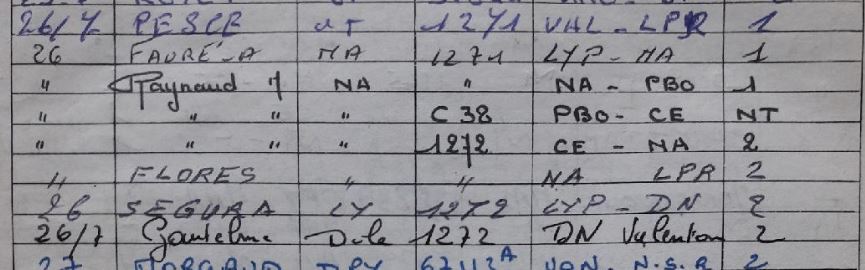 26/7 PESCE 1271 VAL - LPR 1
26 FAURÉ-A NA 1271 LYP - NA 1
" Raynaud Y NA " NA - PBO 1
" " " " C 38 PBO - CE NT
" " " " 1272 CE - NA 2
" FLORES " " NA LPR 2
26 SEGURA LY 1272 LYP - DN 2
26/7 Dole 1272 DN Valenton 2
27 2